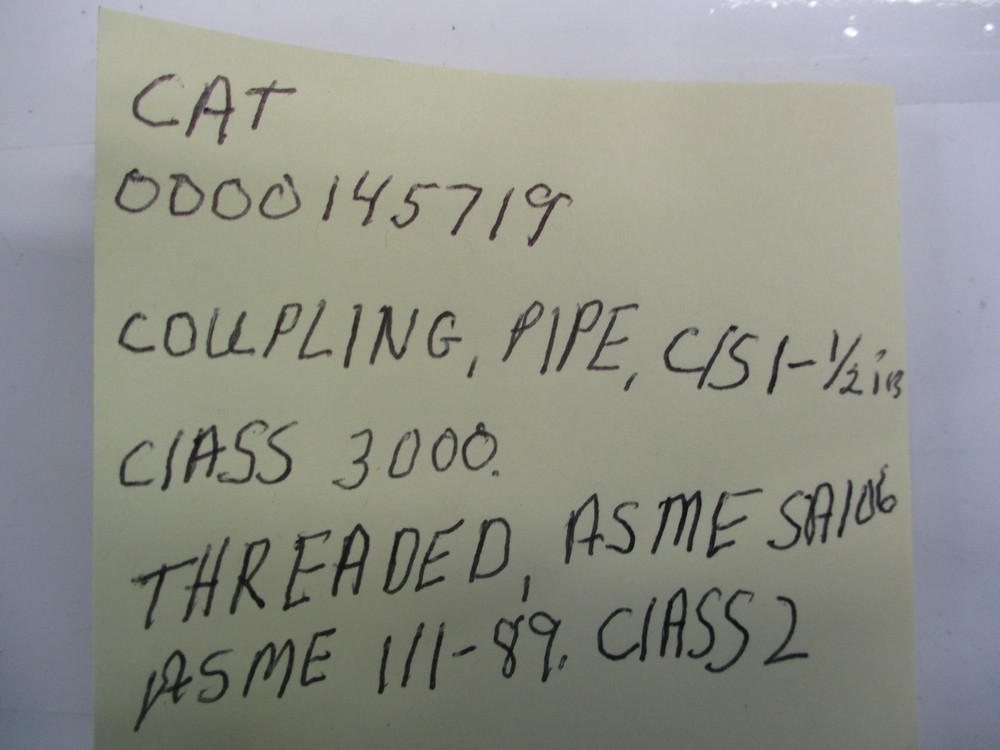 CAT
0000145719
COUPLING, PIPE, C/S 1-1/2 in
CLASS 3000.
THREADED, ASME SA106
ASME 111-89. CLASS 2